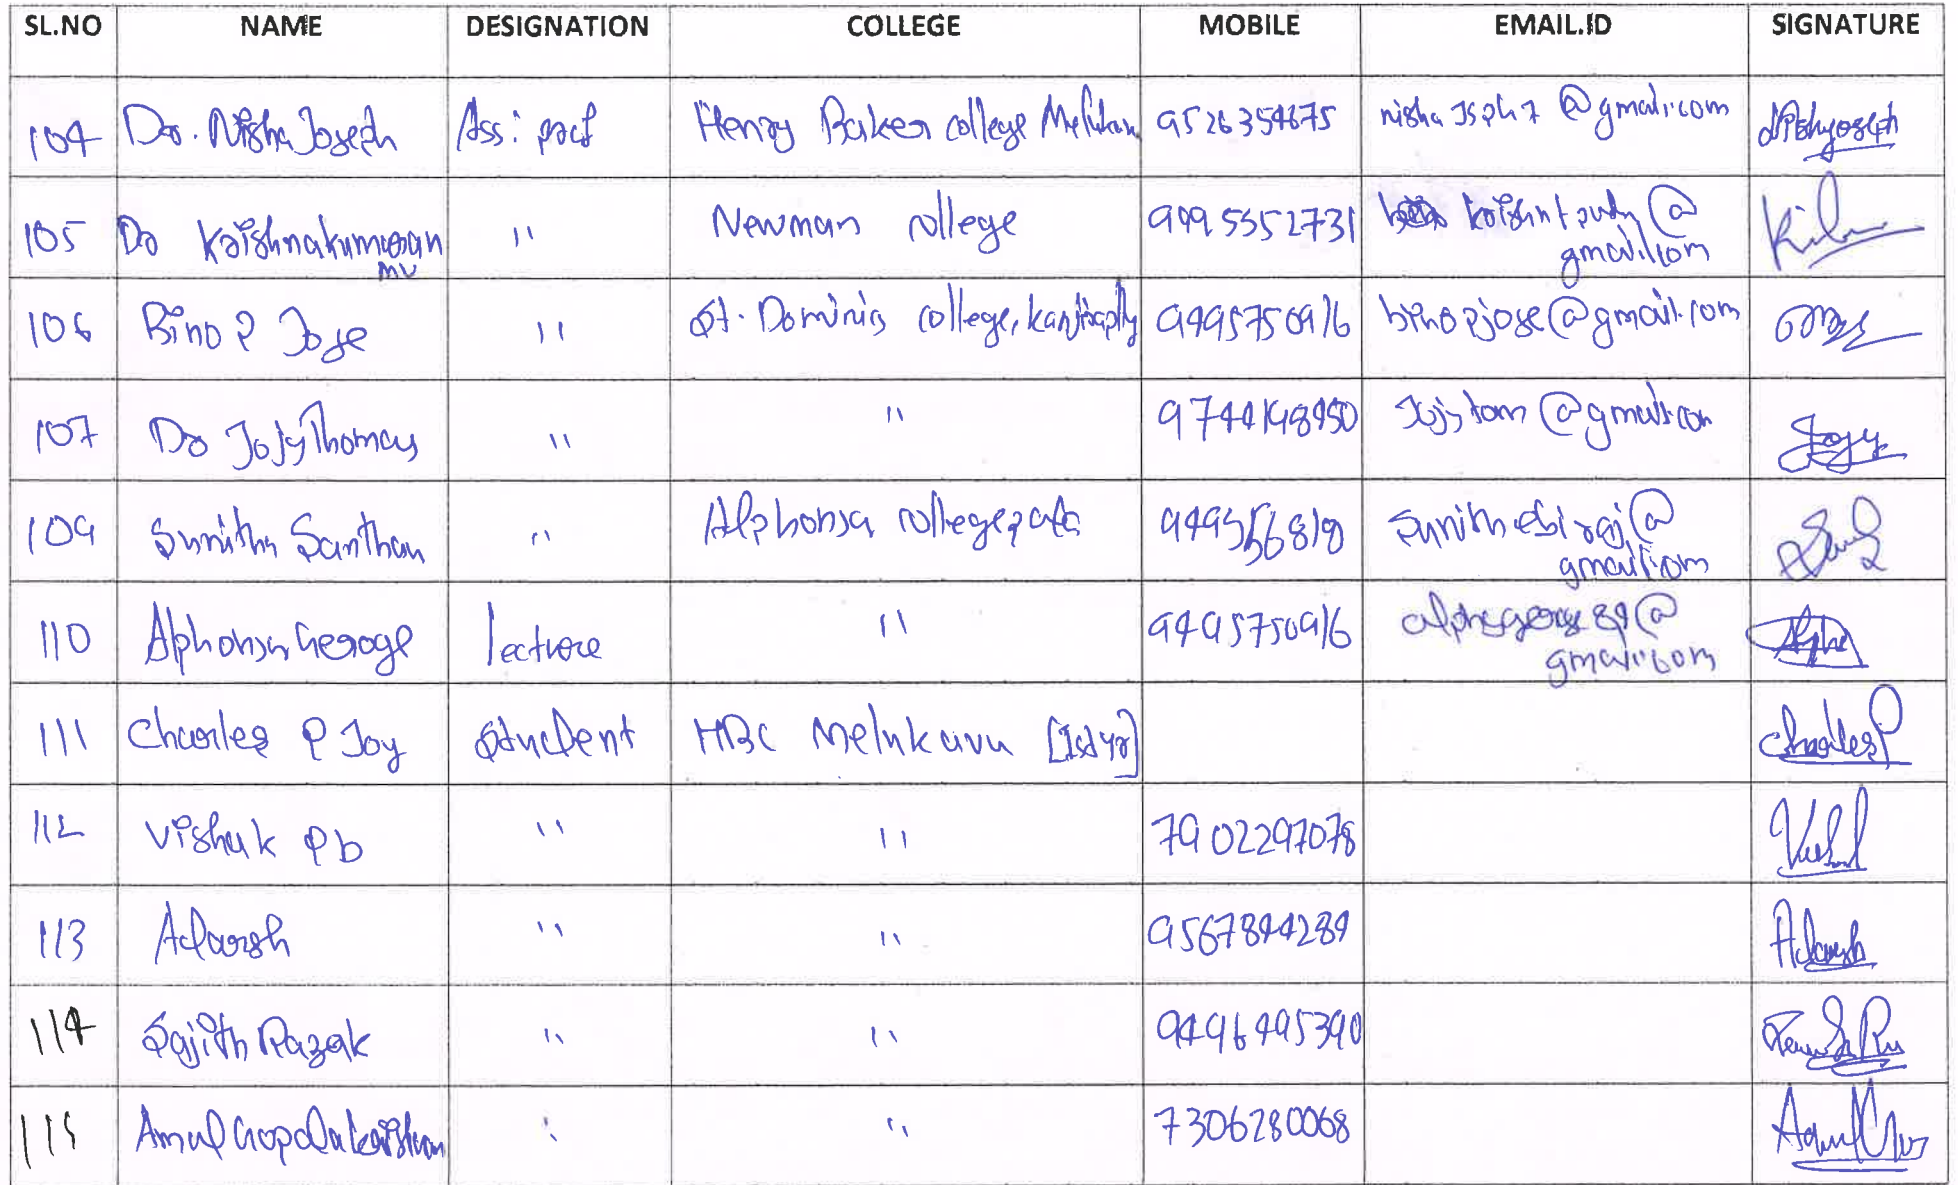 SL.NO NAME DESIGNATION COLLEGE MOBILE EMAIL.ID SIGNATURE
104 Dr. Nisha Joseph Ass: prof Henry Baker college Melukavu 9526354675 @gmail.com
105 Dr Krishnakumaran " Newman college 9995552731 @
MV gmail.com
106 Bino P Jose " St. Dominic college, 9495750916 binopjose@gmail.com
107 Dr Jojy Thomas " " 9744148450 @gmail.com
109 Sunitha Santhan " Alphonsa college pala
gmail.com
110 Alphonsa Geroge lecture " 9495750916
gmail.com
111 Charles P Joy Student HBC Melukavu [Ist yr] Charles P
112 Vishak Pb " " 7902297078
113 Adarsh " " 9567844284 Adarsh
114 Sajith Razak " " 9496495390
115 Amal Gopalakrishnan " " 7306280068